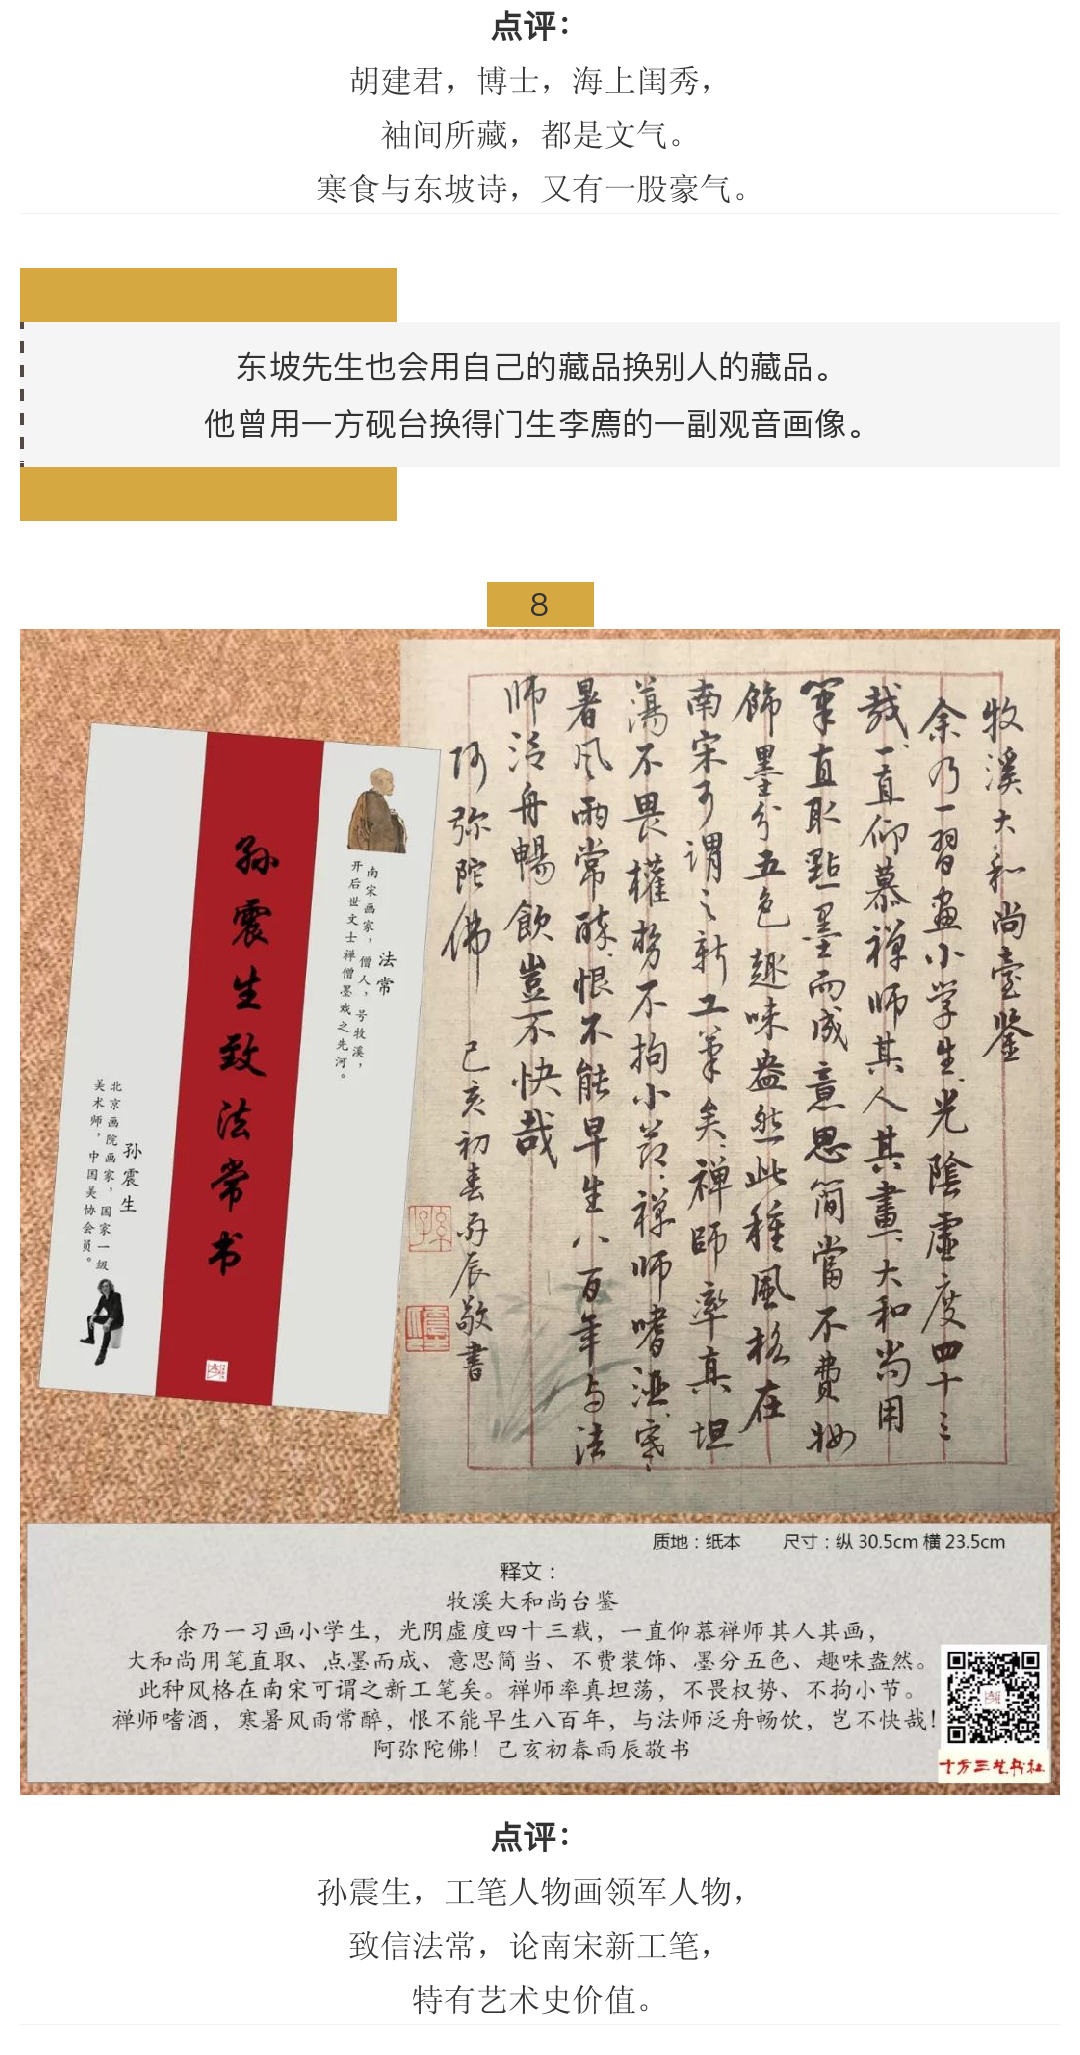 点评：
胡建君，博士，海上闺秀，
袖间所藏，都是文气。
寒食与东坡诗，又有一股豪气。
东坡先生也会用自己的藏品换别人的藏品。
他曾用一方砚台换得门生李廌的一副观音画像。
8
牧溪大和尚臺鉴
余乃一習畫小学生、光陰虛度四十三
哉、一直仰慕禅师其人其畫、大和尚用
筆直取點墨而成意思簡當不費妝
飾墨分五色趣味盎然此種風格在
南宋可謂之新工筆矣、禅師率真坦
蕩不畏權势不拘小节、禅师嗜酒、寒
暑风雨常醉、恨不能早生八百年与法
师泛舟暢飲豈不快哉
阿弥陀佛 己亥初春雨辰敬書
法常
南宋画家，僧人，号牧溪，
开后世文士禅僧墨戏之先河。
孙震生致法常书
孙震生
北京画院画家，国家一级
美术师，中国美协会员。
质地：纸本 尺寸：纵 30.5cm 横 23.5cm
释文：
牧溪大和尚台鉴
余乃一习画小学生，光阴虚度四十三载，一直仰慕禅师其人其画，
大和尚用笔直取、点墨而成、意思简当、不费装饰、墨分五色、趣味盎然。
此种风格在南宋可谓之新工笔矣。禅师率真坦荡，不畏权势、不拘小节。
禅师嗜酒，寒暑风雨常醉，恨不能早生八百年，与法师泛舟畅饮，岂不快哉！
阿弥陀佛！己亥初春雨辰敬书
十方三生书社
点评：
孙震生，工笔人物画领军人物，
致信法常，论南宋新工笔，
特有艺术史价值。